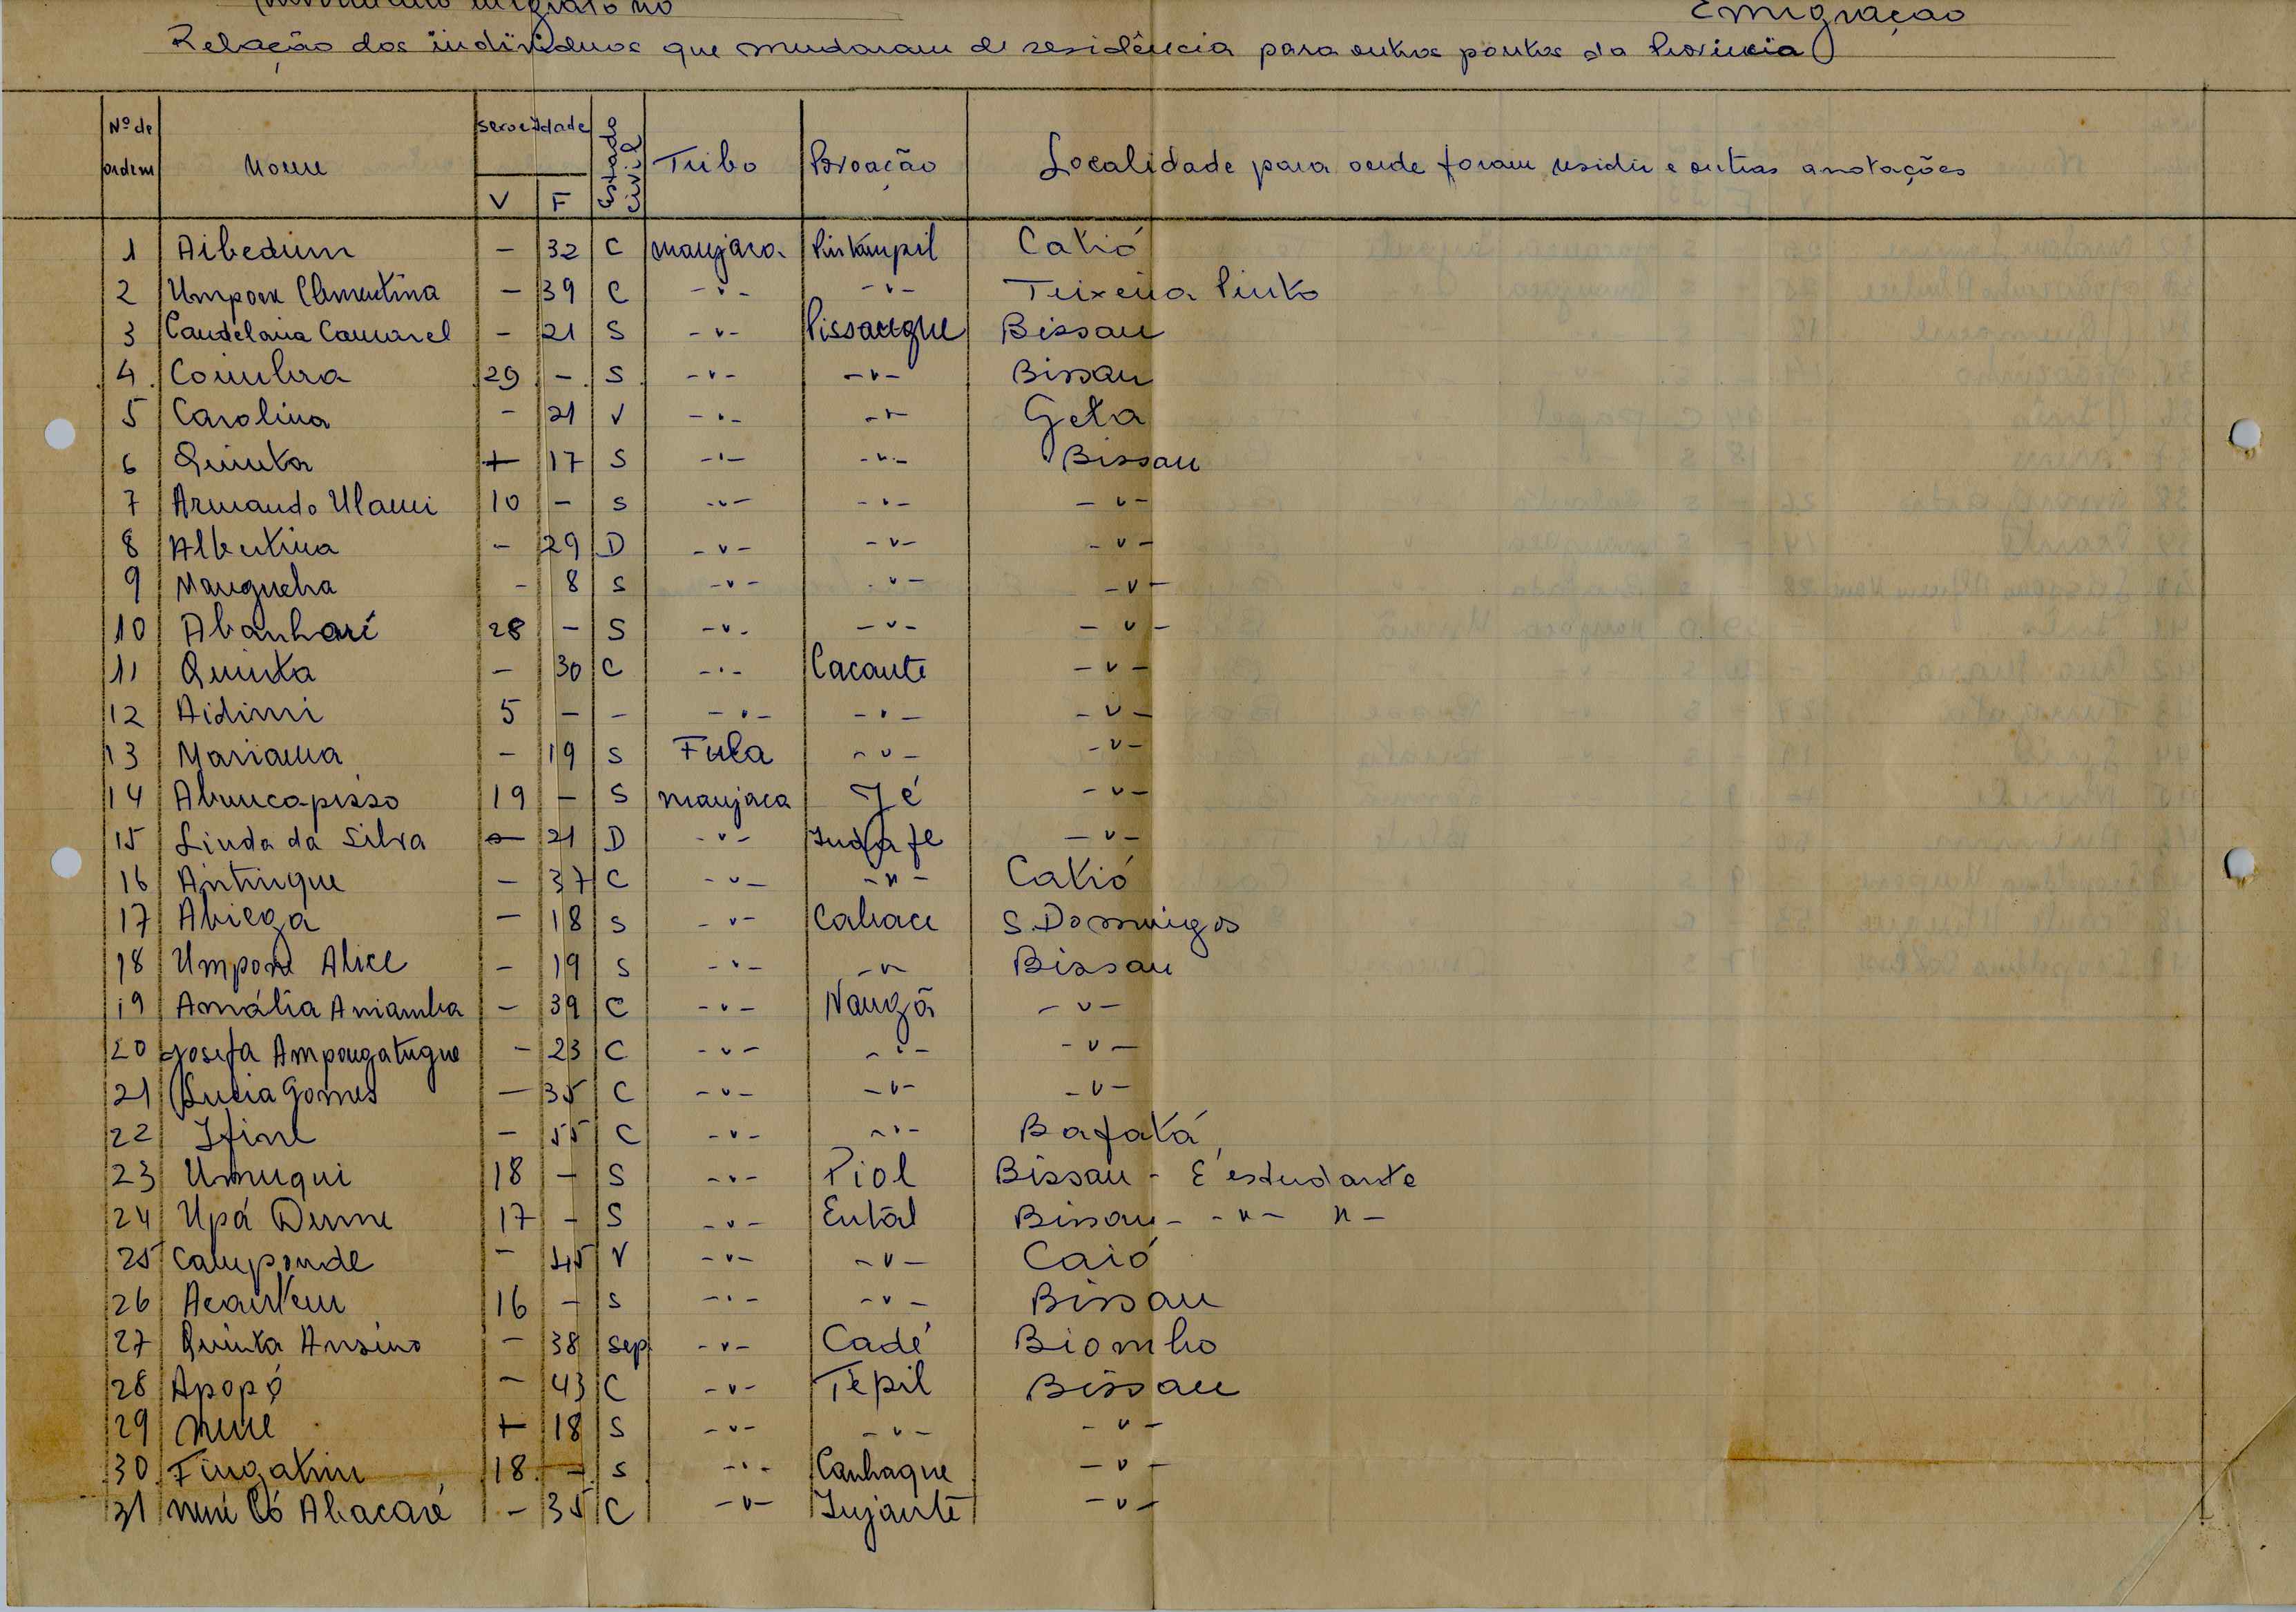 Emigração
Relação dos indivíduos que mudaram de residência para outros pontos da Província
Nº de ordem Nome Sexo e Idade V F Estado Civil Tribo Povoação Localidade para onde foram residir e outras anotações
1 Aibedum - 32 C manjaca Catió
2 Clementina - 39 C -"- -"- Teixeira Pinto
3 Candelaria Camarel - 21 S -"- Pissangue Bissau
4 Coimbra 29 - S -"- -"- Bissau
5 Carolina - 21 V -"- -"- Geta
6 Quinta - 17 S -"- -"- Bissau
7 Armando Ulami 10 - S -"- -"- -"-
8 Albertina - 29 D -"- -"- -"-
9 Mangucha - 8 S -"- -"- -"-
10 Abanharé 28 - S -"- -"- -"-
11 Quinta - 30 C -"- Cacante -"-
12 Aidimi 5 - - -"- -"- -"-
13 Mariama - 19 S Fula -"- -"-
14 Abuncapisso 19 - S manjaca Jé -"-
15 Linda da Silva - 21 D -"- Indafe -"-
16 Antuique - 37 C -"- -"- Catió
17 Abiega - 18 S -"- Cabace S. Domingos
18 Umpone Alice - 19 S -"- -"- Bissau
19 Amália Aniamba - 39 C -"- Nangã -"-
20 Josefa Ampongatugue - 23 C -"- -"- -"-
21 Lucia Gomes - 35 C -"- -"- -"-
22 Ifine - 55 C -"- -"- Bafatá
23 Umuqui 18 - S -"- Piol Bissau - É estudante
24 Upá Dume 17 - S -"- Entál Bissau - -"- "-
25 Camponde - 45 V -"- -"- Caió
26 Acantem 16 - S -"- -"- Bissau
27 Quinta Ansino - 38 sep -"- Cadé Biombo
28 Apopó - 43 C -"- Tepil Bissau
29 Nené - 18 S -"- -"- -"-
30 Fingatim 18 - S -"- Canhaque -"-
31 Nené Có Abacaré - 35 C -"- Injante -"-